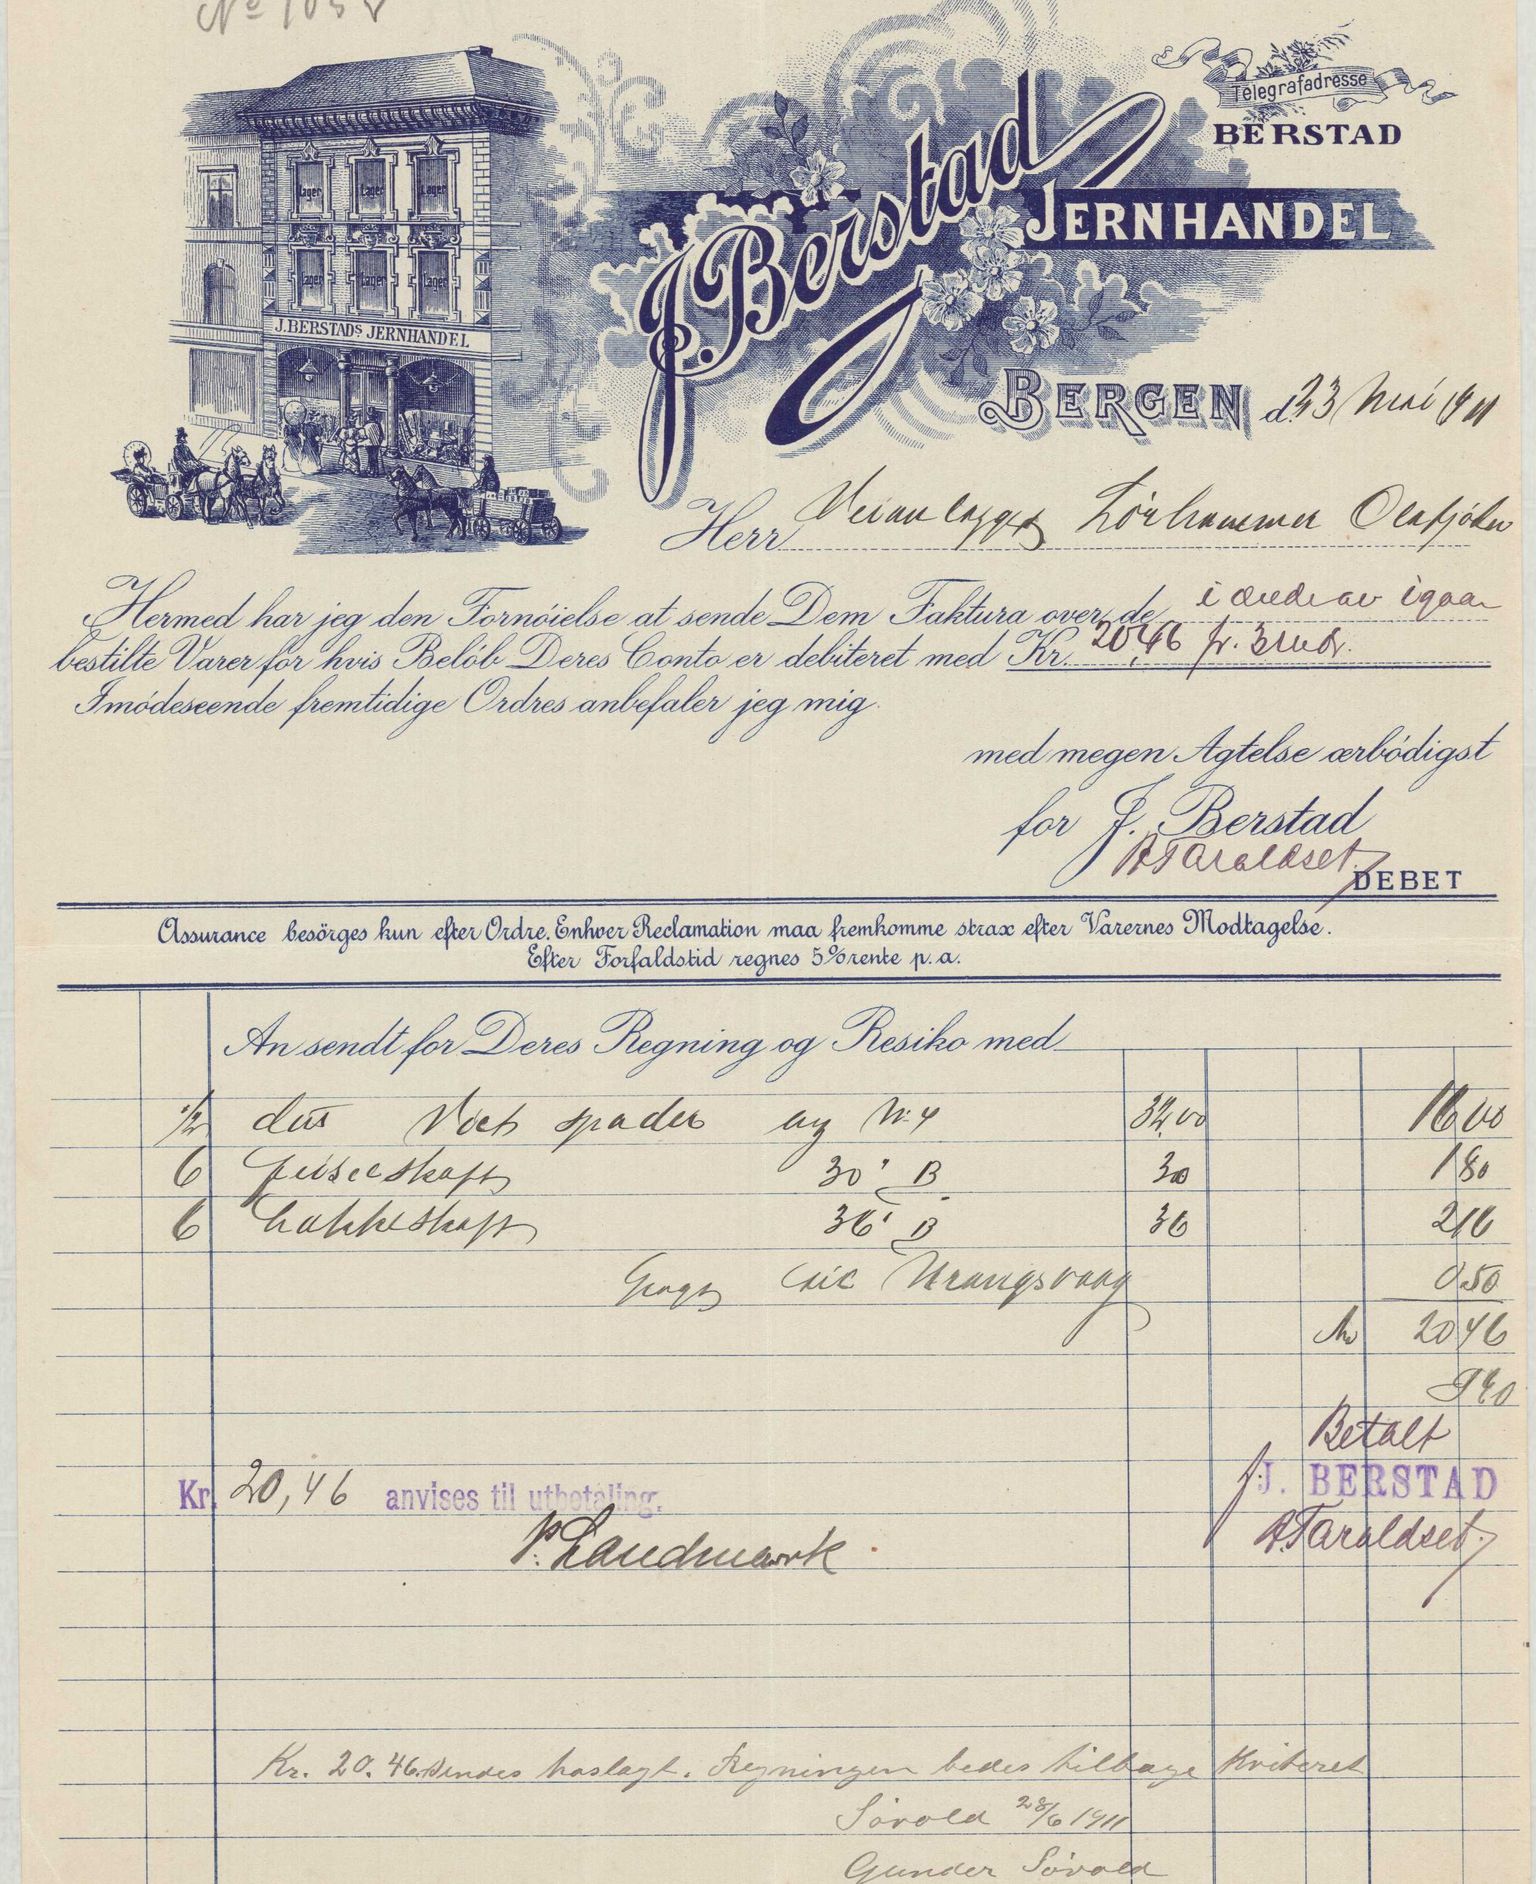 Telegrafadresse
BERSTAD
J. Berstad
JERNHANDEL
Lager Lager Lager
Lager Lager Lager
J. BERSTADS JERNHANDEL
BERGEN d. 23 Mai 1911
Herr Veianlægget Olafjorden
Hermed har jeg den Fornöielse at sende Dem Faktura over de i ordre av igaar
bestilte Varer for hvis Belöb Deres Conto er debiteret med Kr. 20,46 pr. 3 mdr.
Imödeseende fremtidige Ordres anbefaler jeg mig.
med megen Agtelse ærbödigst
for J. Berstad
A Taraldset
DEBET
Assurance besörges kun efter Ordre. Enhver Reclamation maa fremkomme strax efter Varernes Modtagelse.
Efter Forfaldstid regnes 5% rente p. a.
An sendt for Deres Regning og Resiko med
1/2 dus spader No 4 32,00 16 00
6 feiselskaft 30" B 30 1 80
6 hakkeskaft 36" B 36 2 16
Fragt til Vrangsvaag 0.50
Kr 20 46
Betalt
Kr. 20,46 anvises til utbetaling.
f J. BERSTAD
P. Landmark
A. Taraldset
Kr. 20.46 sendes hoslagt. Regningen bedes tilbage kviteret
Sövold 28/6 1911
Gunder Sövold